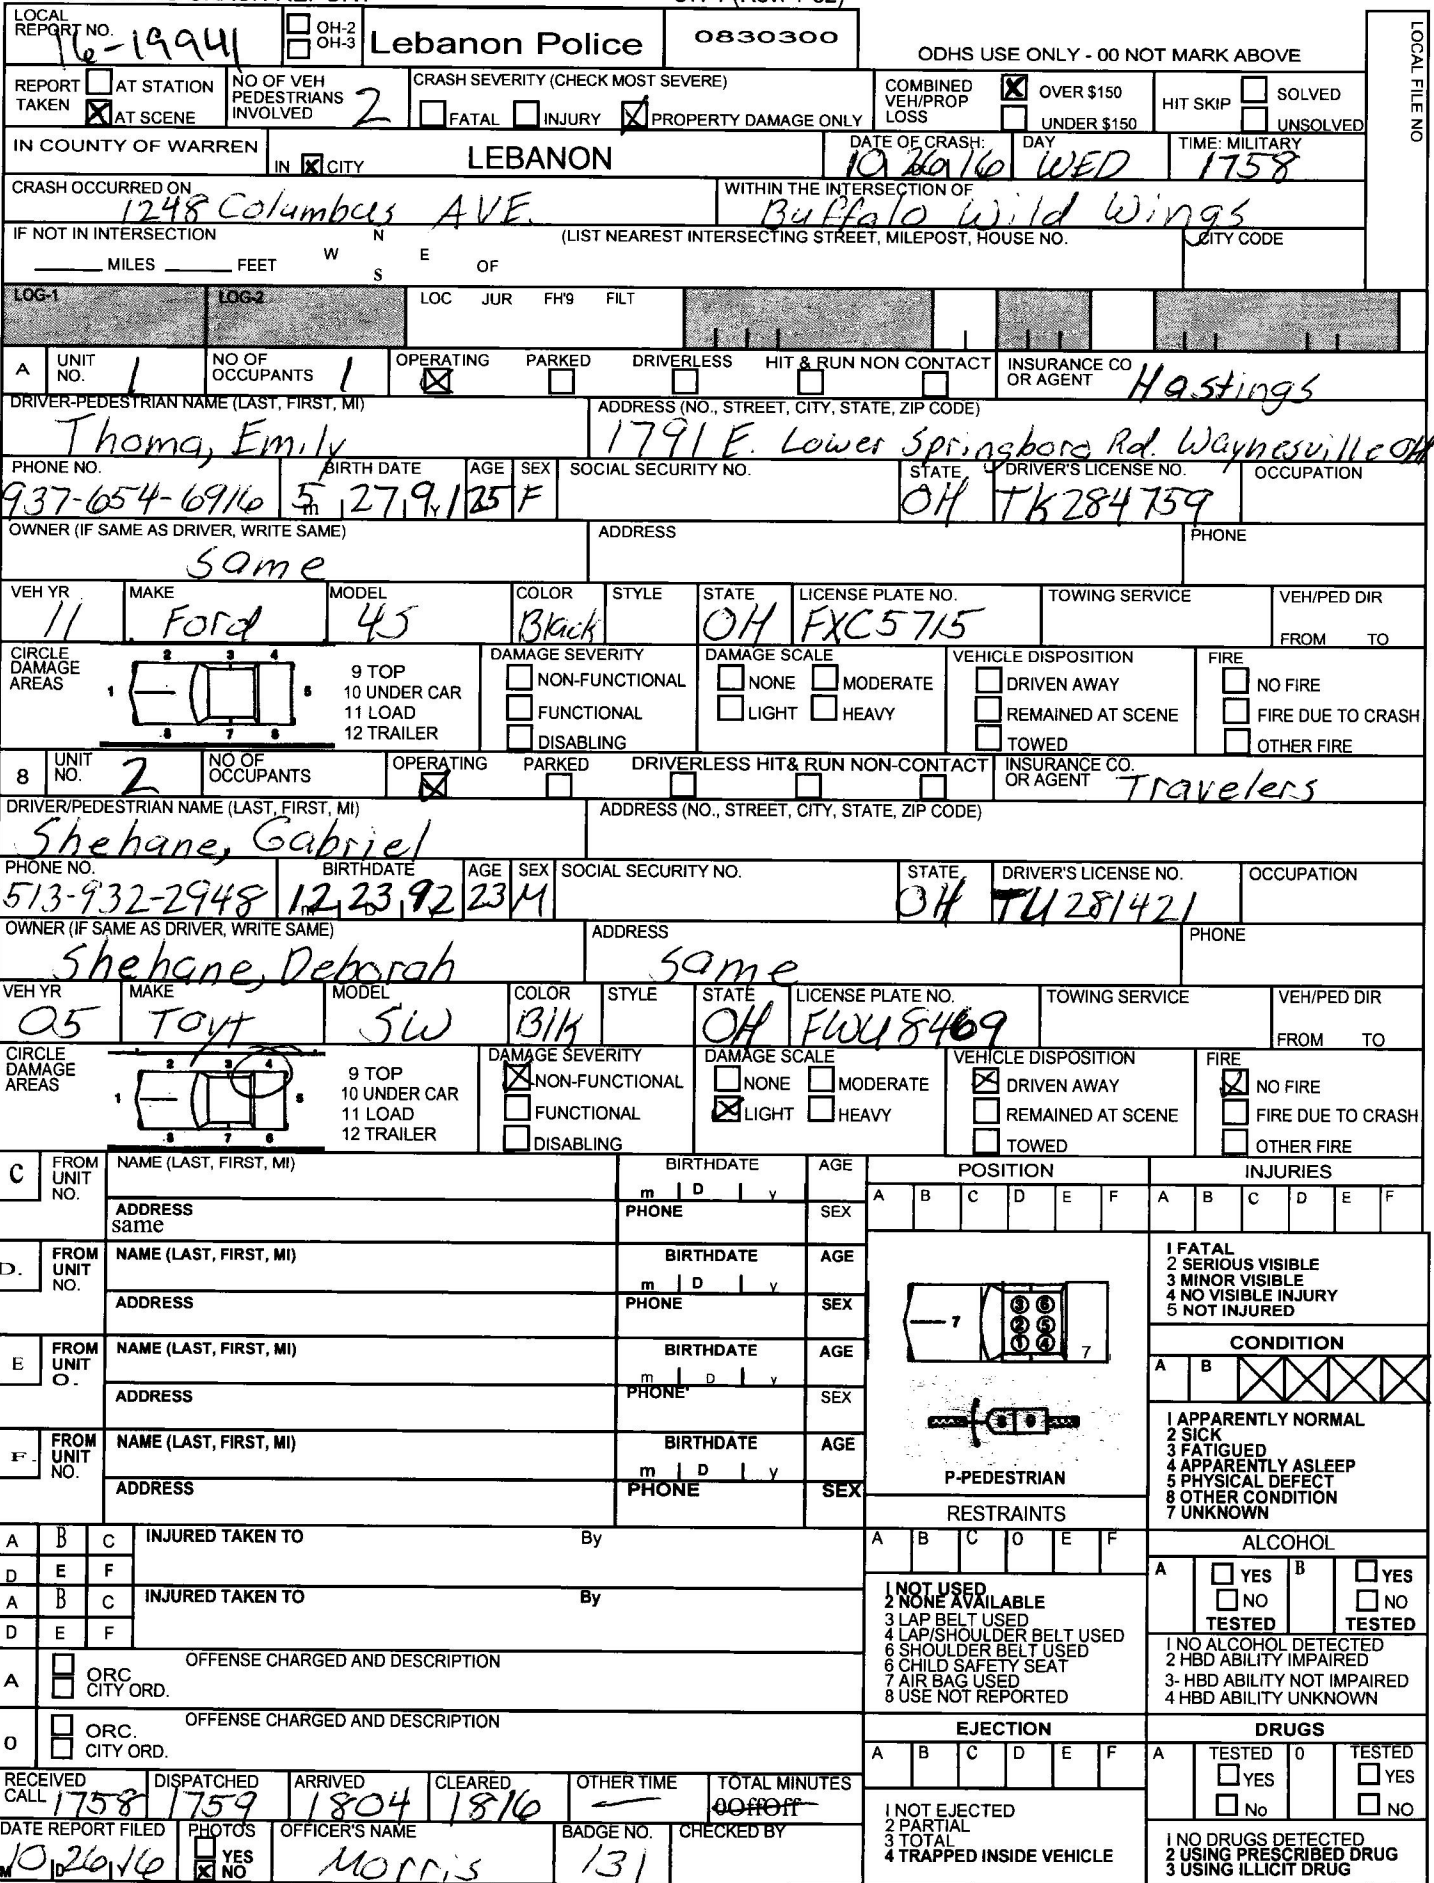 OH-1 (Rev. 1-82)
LOCAL REPORT NO. 16-19941 OH-2 OH-3 Lebanon Police 0830300 ODHS USE ONLY - 00 NOT MARK ABOVE LOCAL FILE NO
REPORT TAKEN AT STATION AT SCENE NO OF VEH PEDESTRIANS INVOLVED 2 CRASH SEVERITY (CHECK MOST SEVERE) FATAL INJURY PROPERTY DAMAGE ONLY COMBINED VEH/PROP LOSS OVER $150 UNDER $150 HIT SKIP SOLVED UNSOLVED
IN COUNTY OF WARREN IN CITY LEBANON DATE OF CRASH: 10 26 16 DAY WED TIME: MILITARY 1758
CRASH OCCURRED ON 1248 Columbus AVE. WITHIN THE INTERSECTION OF Buffalo Wild Wings
IF NOT IN INTERSECTION MILES FEET N W E S OF (LIST NEAREST INTERSECTING STREET, MILEPOST, HOUSE NO. CITY CODE
LOG-1 LOG-2 LOC JUR FH'9 FILT
A UNIT NO. 1 NO OF OCCUPANTS 1 OPERATING PARKED DRIVERLESS HIT & RUN NON CONTACT INSURANCE CO OR AGENT Hastings
DRIVER-PEDESTRIAN NAME (LAST, FIRST, MI) Thoma, Emily ADDRESS (NO., STREET, CITY, STATE, ZIP CODE) 1791 E. Lower Springboro Rd. Waynesville OH
PHONE NO. 937-654-6916 BIRTH DATE 5 27 91 AGE 25 SEX F SOCIAL SECURITY NO. STATE OH DRIVER'S LICENSE NO. TK284759 OCCUPATION
OWNER (IF SAME AS DRIVER, WRITE SAME) Same ADDRESS PHONE
VEH YR 11 MAKE Ford MODEL 4S COLOR Black STYLE STATE OH LICENSE PLATE NO. FXC5715 TOWING SERVICE VEH/PED DIR FROM TO
CIRCLE DAMAGE AREAS 1 2 3 4 5 8 7 6 9 TOP 10 UNDER CAR 11 LOAD 12 TRAILER DAMAGE SEVERITY NON-FUNCTIONAL FUNCTIONAL DISABLING DAMAGE SCALE NONE MODERATE LIGHT HEAVY VEHICLE DISPOSITION DRIVEN AWAY REMAINED AT SCENE TOWED FIRE NO FIRE FIRE DUE TO CRASH OTHER FIRE
8 UNIT NO. 2 NO OF OCCUPANTS OPERATING PARKED DRIVERLESS HIT& RUN NON-CONTACT INSURANCE CO. OR AGENT Travelers
DRIVER/PEDESTRIAN NAME (LAST, FIRST, MI) Shehane, Gabriel ADDRESS (NO., STREET, CITY, STATE, ZIP CODE)
PHONE NO. 513-932-2948 BIRTHDATE 12 23 92 AGE 23 SEX M SOCIAL SECURITY NO. STATE OH DRIVER'S LICENSE NO. TU281421 OCCUPATION
OWNER (IF SAME AS DRIVER, WRITE SAME) Shehane, Deborah ADDRESS Same PHONE
VEH YR 05 MAKE Toyt MODEL SW COLOR Blk STYLE STATE OH LICENSE PLATE NO. FWU8469 TOWING SERVICE VEH/PED DIR FROM TO
CIRCLE DAMAGE AREAS 1 2 3 4 5 8 7 6 9 TOP 10 UNDER CAR 11 LOAD 12 TRAILER DAMAGE SEVERITY NON-FUNCTIONAL FUNCTIONAL DISABLING DAMAGE SCALE NONE MODERATE LIGHT HEAVY VEHICLE DISPOSITION DRIVEN AWAY REMAINED AT SCENE TOWED FIRE NO FIRE FIRE DUE TO CRASH OTHER FIRE
C FROM UNIT NO. NAME (LAST, FIRST, MI) BIRTHDATE m D y AGE POSITION A B C D E F INJURIES A B C D E F
ADDRESS same PHONE SEX
D. FROM UNIT NO. NAME (LAST, FIRST, MI) BIRTHDATE m D y AGE
ADDRESS PHONE SEX
1 FATAL
2 SERIOUS VISIBLE
3 MINOR VISIBLE
4 NO VISIBLE INJURY
5 NOT INJURED
7 3 6 2 5 1 4 7
E FROM UNIT O. NAME (LAST, FIRST, MI) BIRTHDATE m D y AGE
ADDRESS PHONE SEX
CONDITION A B
8 9
P-PEDESTRIAN
F. FROM UNIT NO. NAME (LAST, FIRST, MI) BIRTHDATE m D y AGE
ADDRESS PHONE SEX
I APPARENTLY NORMAL
2 SICK
3 FATIGUED
4 APPARENTLY ASLEEP
5 PHYSICAL DEFECT
8 OTHER CONDITION
7 UNKNOWN
A B C INJURED TAKEN TO By
D E F
A B C INJURED TAKEN TO By
D E F
RESTRAINTS A B C O E F
I NOT USED
2 NONE AVAILABLE
3 LAP BELT USED
4 LAP/SHOULDER BELT USED
6 SHOULDER BELT USED
6 CHILD SAFETY SEAT
7 AIR BAG USED
8 USE NOT REPORTED
ALCOHOL A YES NO TESTED B YES NO TESTED
I NO ALCOHOL DETECTED
2 HBD ABILITY IMPAIRED
3- HBD ABILITY NOT IMPAIRED
4 HBD ABILITY UNKNOWN
A ORC CITY ORD. OFFENSE CHARGED AND DESCRIPTION
O ORC. CITY ORD. OFFENSE CHARGED AND DESCRIPTION
EJECTION A B C D E F
I NOT EJECTED
2 PARTIAL
3 TOTAL
4 TRAPPED INSIDE VEHICLE
DRUGS A TESTED YES No 0 TESTED YES NO
I NO DRUGS DETECTED
2 USING PRESCRIBED DRUG
3 USING ILLICIT DRUG
RECEIVED CALL 1758 DISPATCHED 1759 ARRIVED 1804 CLEARED 1816 OTHER TIME TOTAL MINUTES 0OffOff
DATE REPORT FILED M 10 D 26 16 PHOTOS YES NO OFFICER'S NAME Morris BADGE NO. 131 CHECKED BY